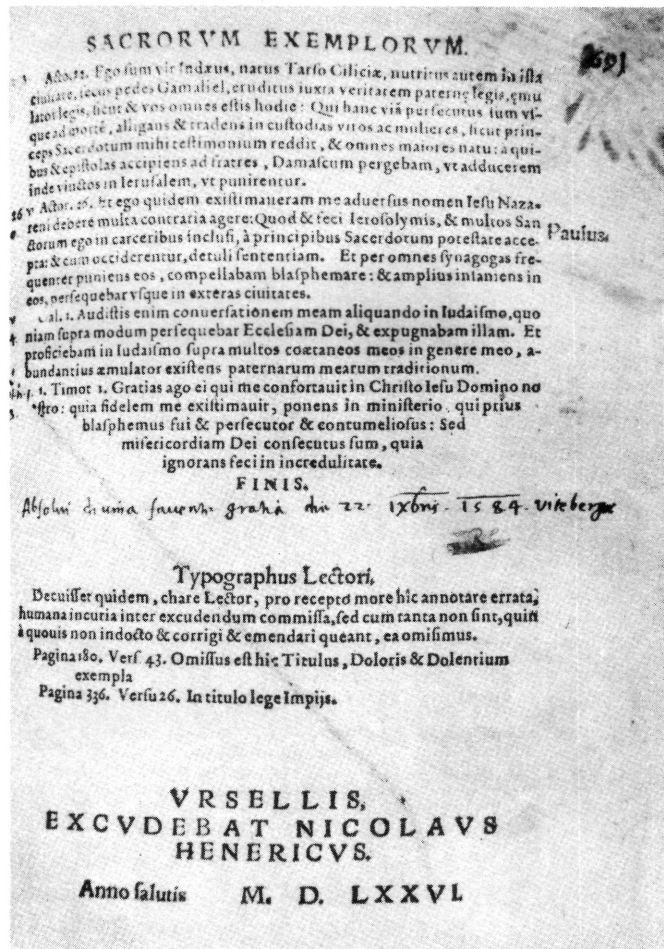 SACRORVM EXEMPLORVM.
Acto. 22. Ego sum vir Iudæus, natus Tarso Ciliciæ, nutritus autem in ista
ciuitate, secus pedes Gamaliel, eruditus iuxta veritatem paternę legis, ęmu
lator legis, sicut & vos omnes estis hodie: Qui hanc viā persecutus sum vs-
que ad mortē, alligans & tradens in custodias viros ac mulieres, sicut prin-
ceps Sacerdotum mihi testimonium reddit, & omnes maiores natu: à qui-
bus & epistolas accipiens ad fratres, Damascum pergebam, vt adducerem
inde vinctos in Ierusalem, vt punirentur.
Actor. 26. Et ego quidem existimaueram me aduersus nomen Iesu Naza-
reni debere multa contraria agere: Quod & feci Ierosolymis, & multos San
ctorum ego in carceribus inclusi, à principibus Sacerdotum potestate acce-
pta: & cum occiderentur, detuli sententiam. Et per omnes synagogas fre-
quenter puniens eos, compellabam blasphemare: & amplius insaniens in
eos, persequebar vsque in exteras ciuitates.
Paulus.
Gal. 1. Audistis enim conuersationem meam aliquando in Iudaismo, quo
niam supra modum persequebar Ecclesiam Dei, & expugnabam illam. Et
proficiebam in Iudaismo supra multos coætaneos meos in genere meo, a-
bundantius æmulator existens paternarum mearum traditionum.
1. Timot 1. Gratias ago ei qui me confortauit in Christo Iesu Domino no
stro: quia fidelem me existimauit, ponens in ministerio qui prius
blasphemus fui & persecutor & contumeliosus: Sed
misericordiam Dei consecutus sum, quia
ignorans feci in incredulitate.
FINIS.
Absolui diuina fauente gratia die 22. IXbris. 1584. Vitebergæ
Typographus Lectori,
Decuisset quidem, chare Lector, pro recepto more hic annotare errata,
humana incuria inter excudendum commissa, sed cum tanta non sint, quin
à quouis non indocto & corrigi & emendari queant, ea omisimus.
Pagina 180. Vers. 43. Omissus est hic Titulus, Doloris & Dolentium
exempla
Pagina 336. Versu 26. In titulo lege Impijs.
VRSELLIS,
EXCVDEBAT NICOLAVS
HENERICVS.
Anno salutis M. D. LXXVI.